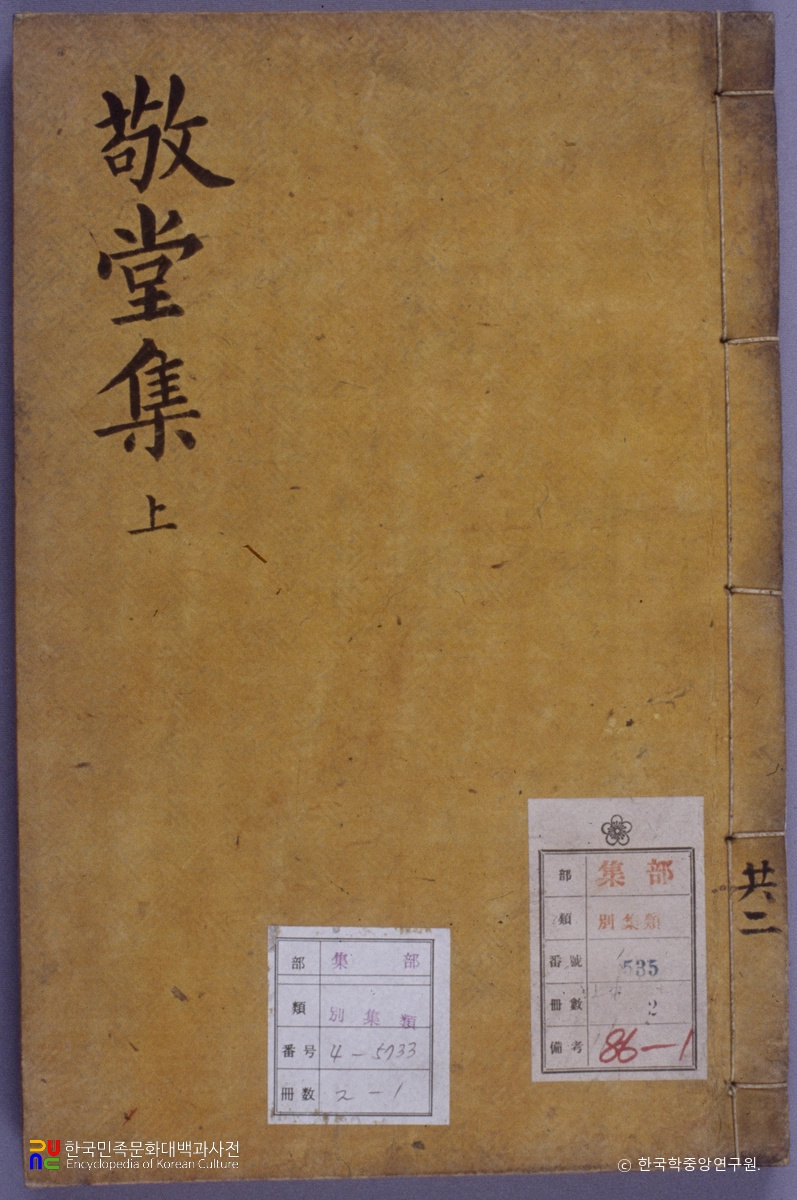 敬堂集
上
共二
部 集部
類 別集類
番號 535
冊數 2
備考 86-1
部 集部
類 別集類
番号 4-5733
冊数 2-1
한국민족문화대백과사전
Encyclopedia of Korean Culture
© 한국학중앙연구원.